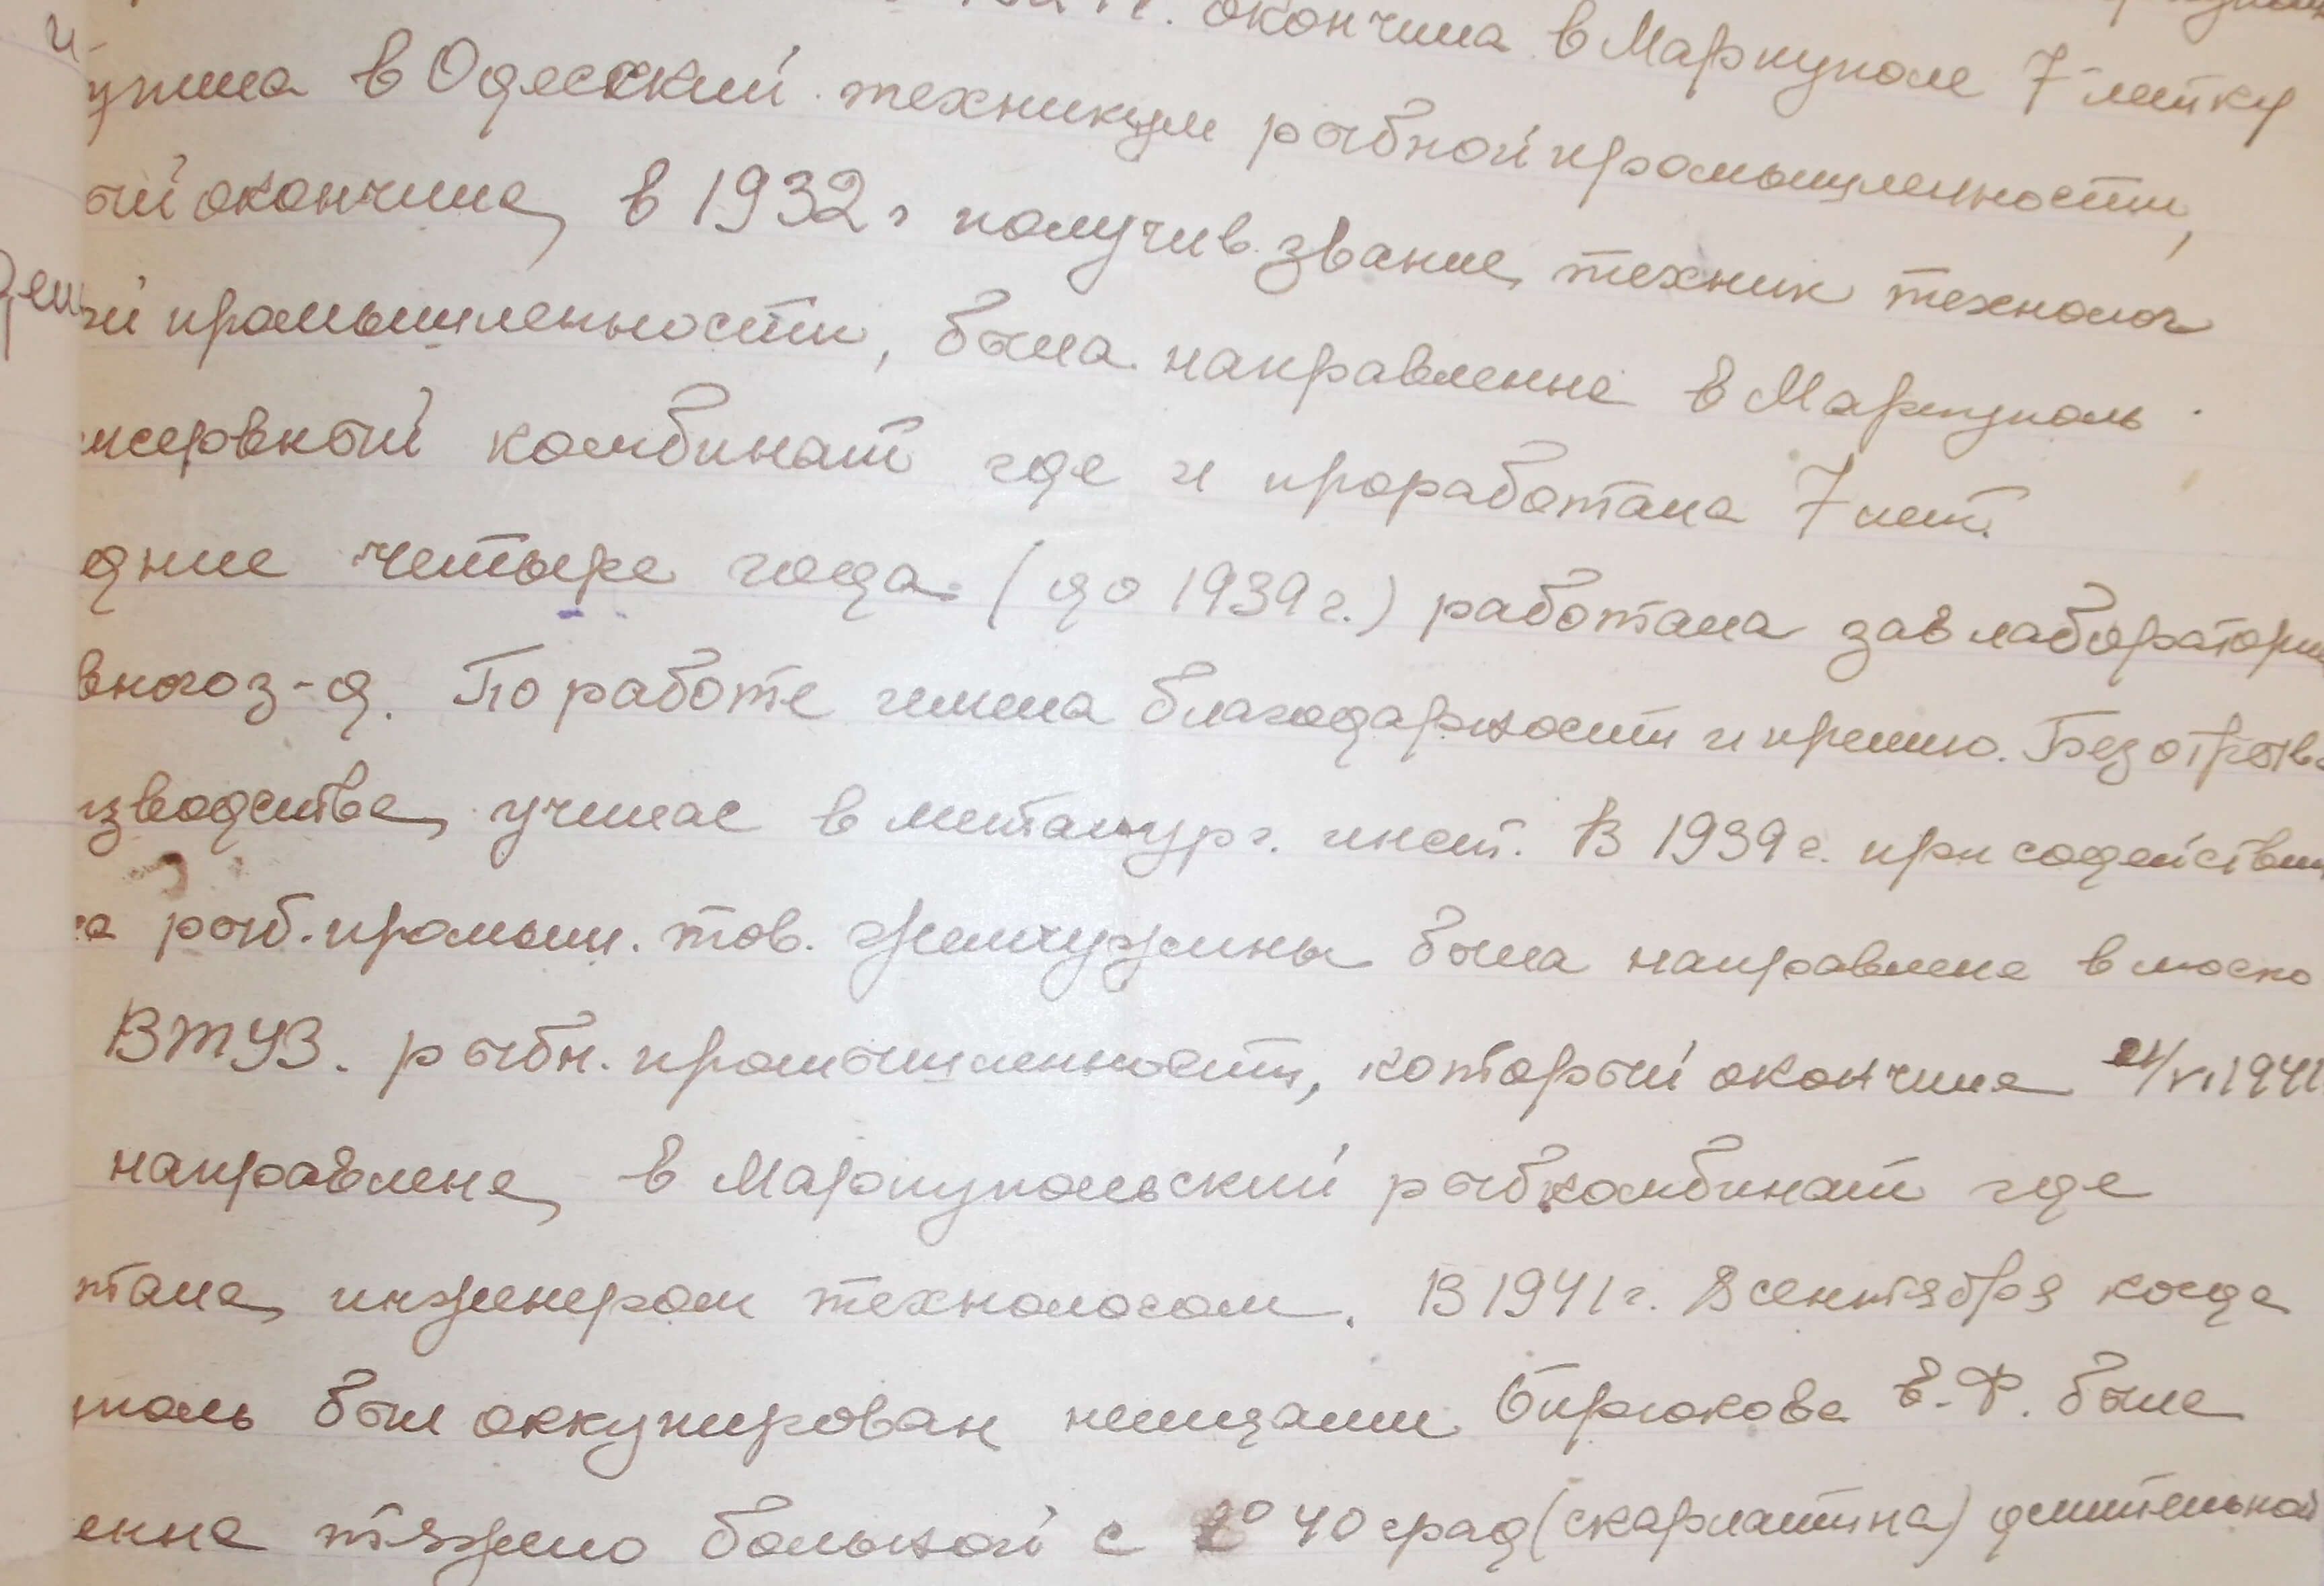 окончила в Мариуполе 7-летку
упила в Одесский техникум рыбной промышленности,
ый окончила в 1932 г получив звание техник технолог
ей промышленности, была направленна в Мариуполь
нсервный комбинат где и проработала 7 лет.
дние четыре года (до 1939 г.) работала зав лаборатори
вного з-д. По работе имела благодарности и премию. Без отрыва
изводства училас в металург. инст. В 1939 г. при содействии
са рыб. промыш. тов. Жемчужины была направлена в моско
ВТУЗ. рыбн. промышленности, который окончила 21/VI 1941
направлена в Мариупольский рыбкомбинат где
тала инженером технологом. В 1941 г. 8 сентября когда
поль был оккупирован немцами Бирюкова В.Ф. была
енна тяжело больной с t° 40 град (скарлатина) длительной